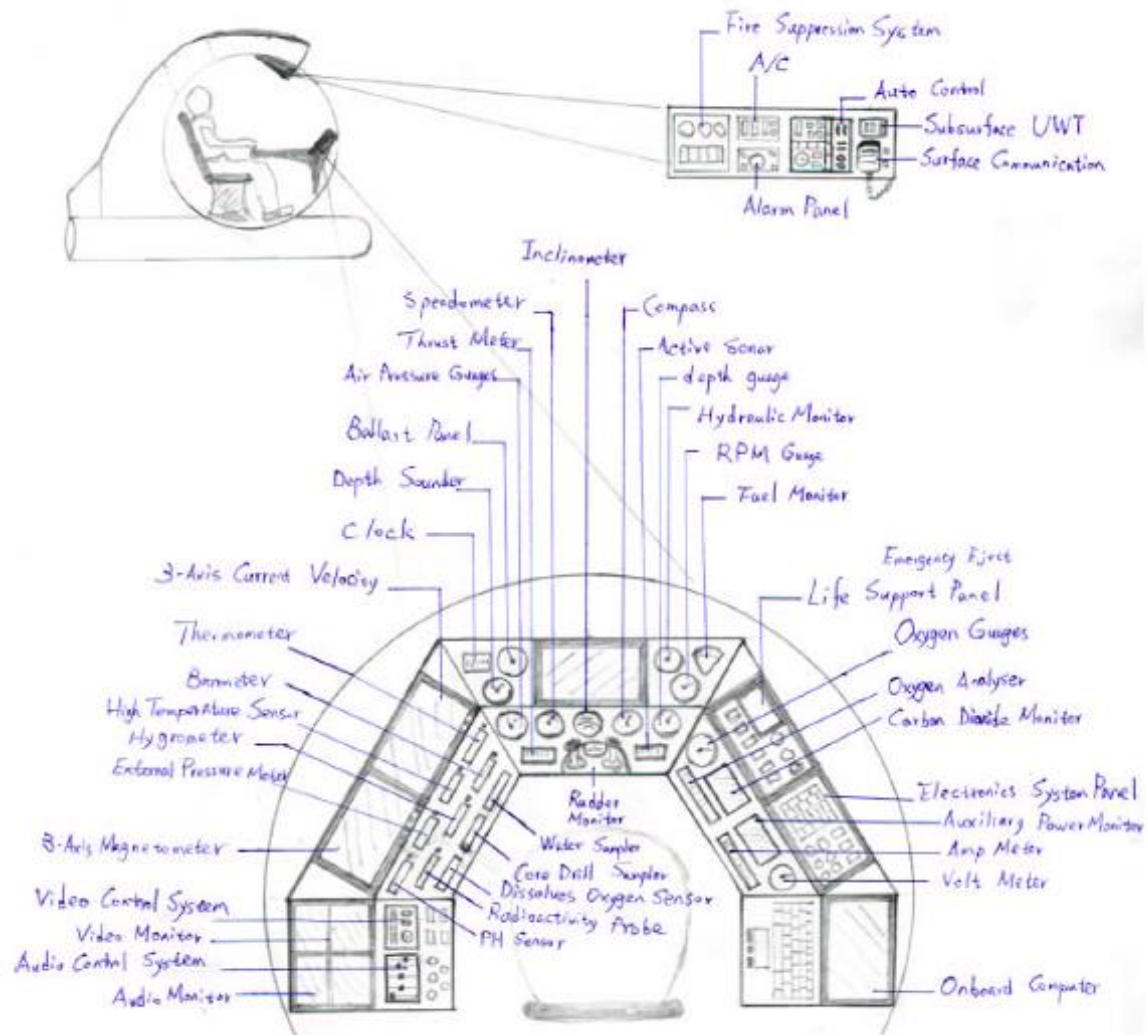 Fire Suppression System
A/C
Auto Control
Subsurface UWT
Surface Communication
Alarm Panel
Inclinometer
Speedometer
Compass
Thrust Meter
Active Sonar
Air Pressure Guages
depth guage
Hydraulic Monitor
Ballast Panel
RPM Guage
Depth Sounder
Fuel Monitor
Clock
Emergency Eject
3-Axis Current Velocity
Life Support Panel
Thermometer
Oxygen Guages
Barometer
Oxygen Analyser
High Temperature Sensor
Carbon Dioxide Monitor
Hygrometer
External Pressure Meter
Rudder
Monitor
Electronics System Panel
Auxiliary Power Monitor
Water Sampler
Amp Meter
3-Axis Magnetometer
Core Drill Sampler
Volt Meter
Dissolves Oxygen Sensor
Video Control System
Radioactivity Probe
Video Monitor
PH Sensor
Audio Control System
Audio Monitor
Onboard Computer